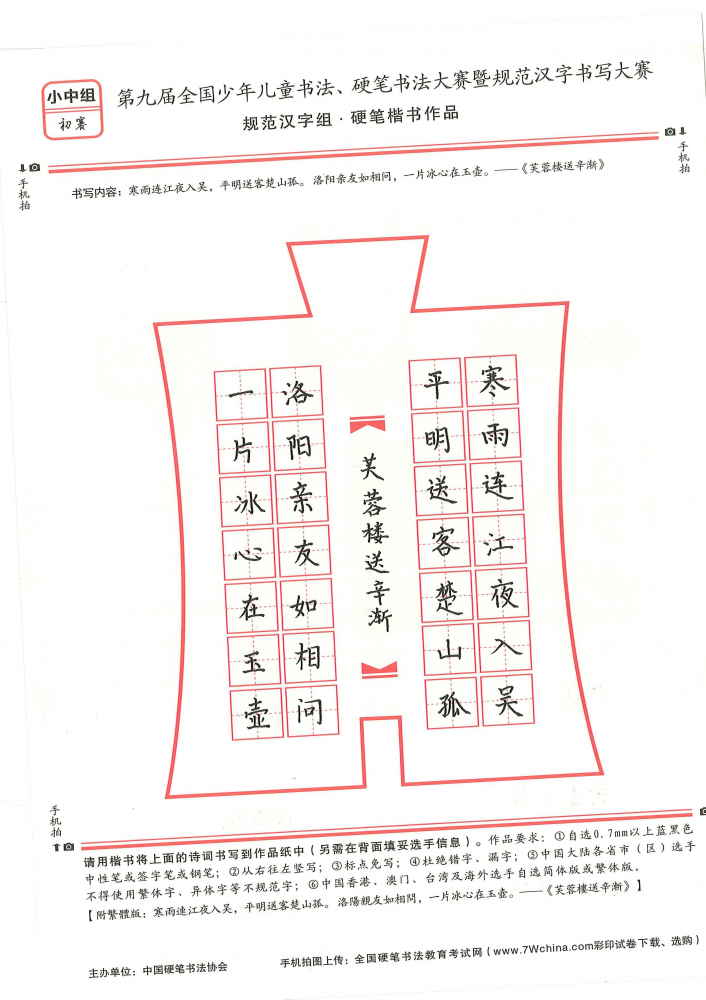 小中组
初赛
第九届全国少年儿童书法、硬笔书法大赛暨规范汉字书写大赛
规范汉字组·硬笔楷书作品
手机拍
手机拍
书写内容：寒雨连江夜入吴，平明送客楚山孤。洛阳亲友如相问，一片冰心在玉壶。——《芙蓉楼送辛渐》
寒雨连江夜入吴
平明送客楚山孤
芙蓉楼送辛渐
洛阳亲友如相问
一片冰心在玉壶
手机拍
请用楷书将上面的诗词书写到作品纸中（另需在背面填妥选手信息）。作品要求：①自选0.7mm以上蓝黑色
中性笔或签字笔或钢笔；②从右往左竖写；③标点免写；④杜绝错字、漏字；⑤中国大陆各省市（区）选手
不得使用繁体字、异体字等不规范字；⑥中国香港、澳门、台湾及海外选手自选简体版或繁体版。
【附繁體版：寒雨連江夜入吴，平明送客楚山孤。洛陽親友如相問，一片冰心在玉壺。——《芙蓉樓送辛漸》】
主办单位：中国硬笔书法协会
手机拍图上传：全国硬笔书法教育考试网（www.7Wchina.com彩印试卷下载、选购）